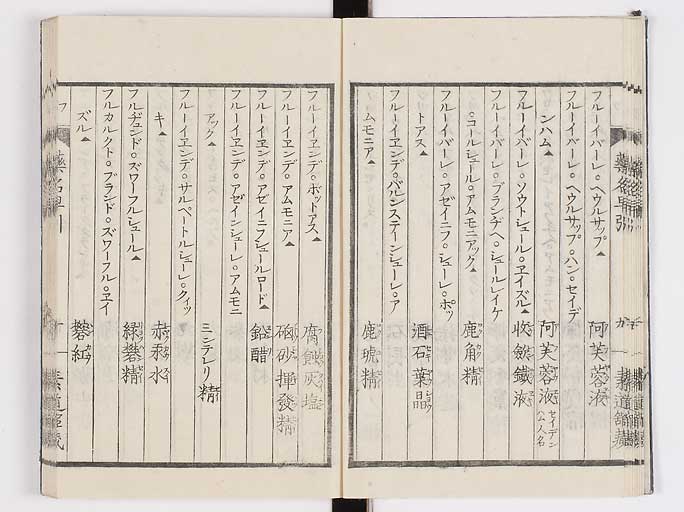 フルーイバーレ。ヘウルサップ▲ 阿芙蓉液
フルーイバーレ。ヘウルサップ。ハン。セイデ
ンハム▲ 阿芙蓉液 セイデン公人名
フルーイバーレ。ソウトシュール。ヱイズル▲ 鐵液
フルーイバーレ。ブランデヘ。シュールレイケ
。コールシュール。アムモニアック▲ 鹿角精
フルーイバーレ。アゼイニフ。シューレ。ポッ
トアス▲ 酒石葉晶
フルーイヱンデ。バルンステインシューレ。ア
ムモニア▲ 鹿琥精
フルーイヱンデ。ポットアス▲ 腐蝕灰塩
フルーイヱンデ。アムモニア▲ 磠砂揮發精
フルーイヱンデ。アゼイニフシュールロード▲ 鉛醋
フルーイヱンデ。アゼインシューレ。アムモニ
アック▲ ミンデレリ精
フルーイヱンデ。サルペートルシューレ。クィッ
キ▲ 赤汞水
フルヂュンド。ズワーフルシュール▲ 緑礬精
フルカルクト。ブランド。ズワーフル。ヱイ
ズル▲ 礬紅